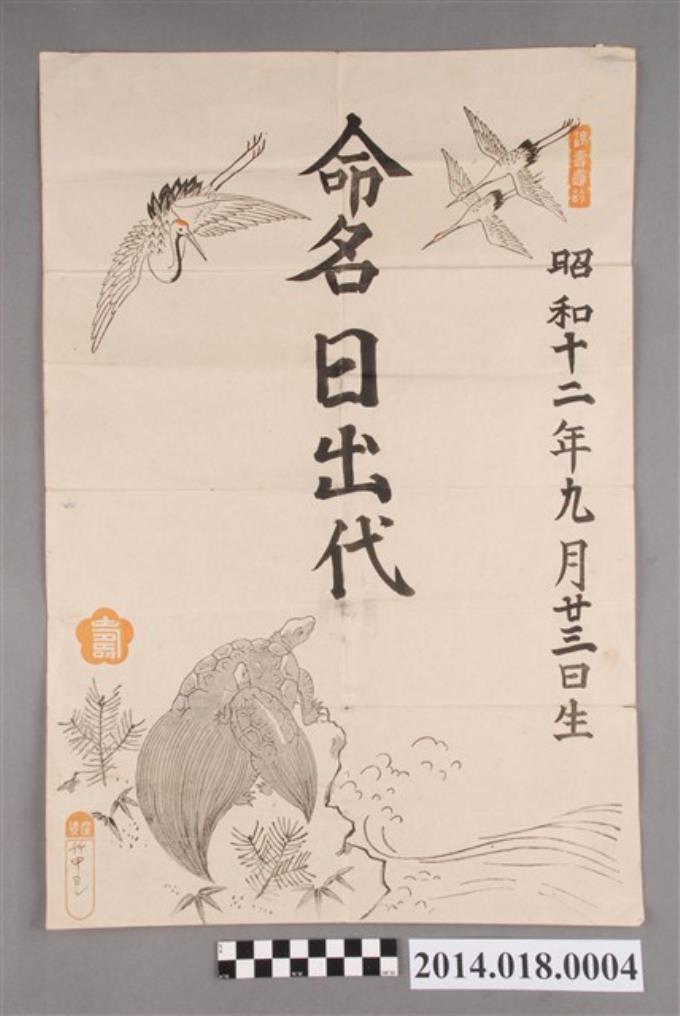 昭和十二年九月廿三日生
命名 日出代
壽
竹中巳
2014.018.0004